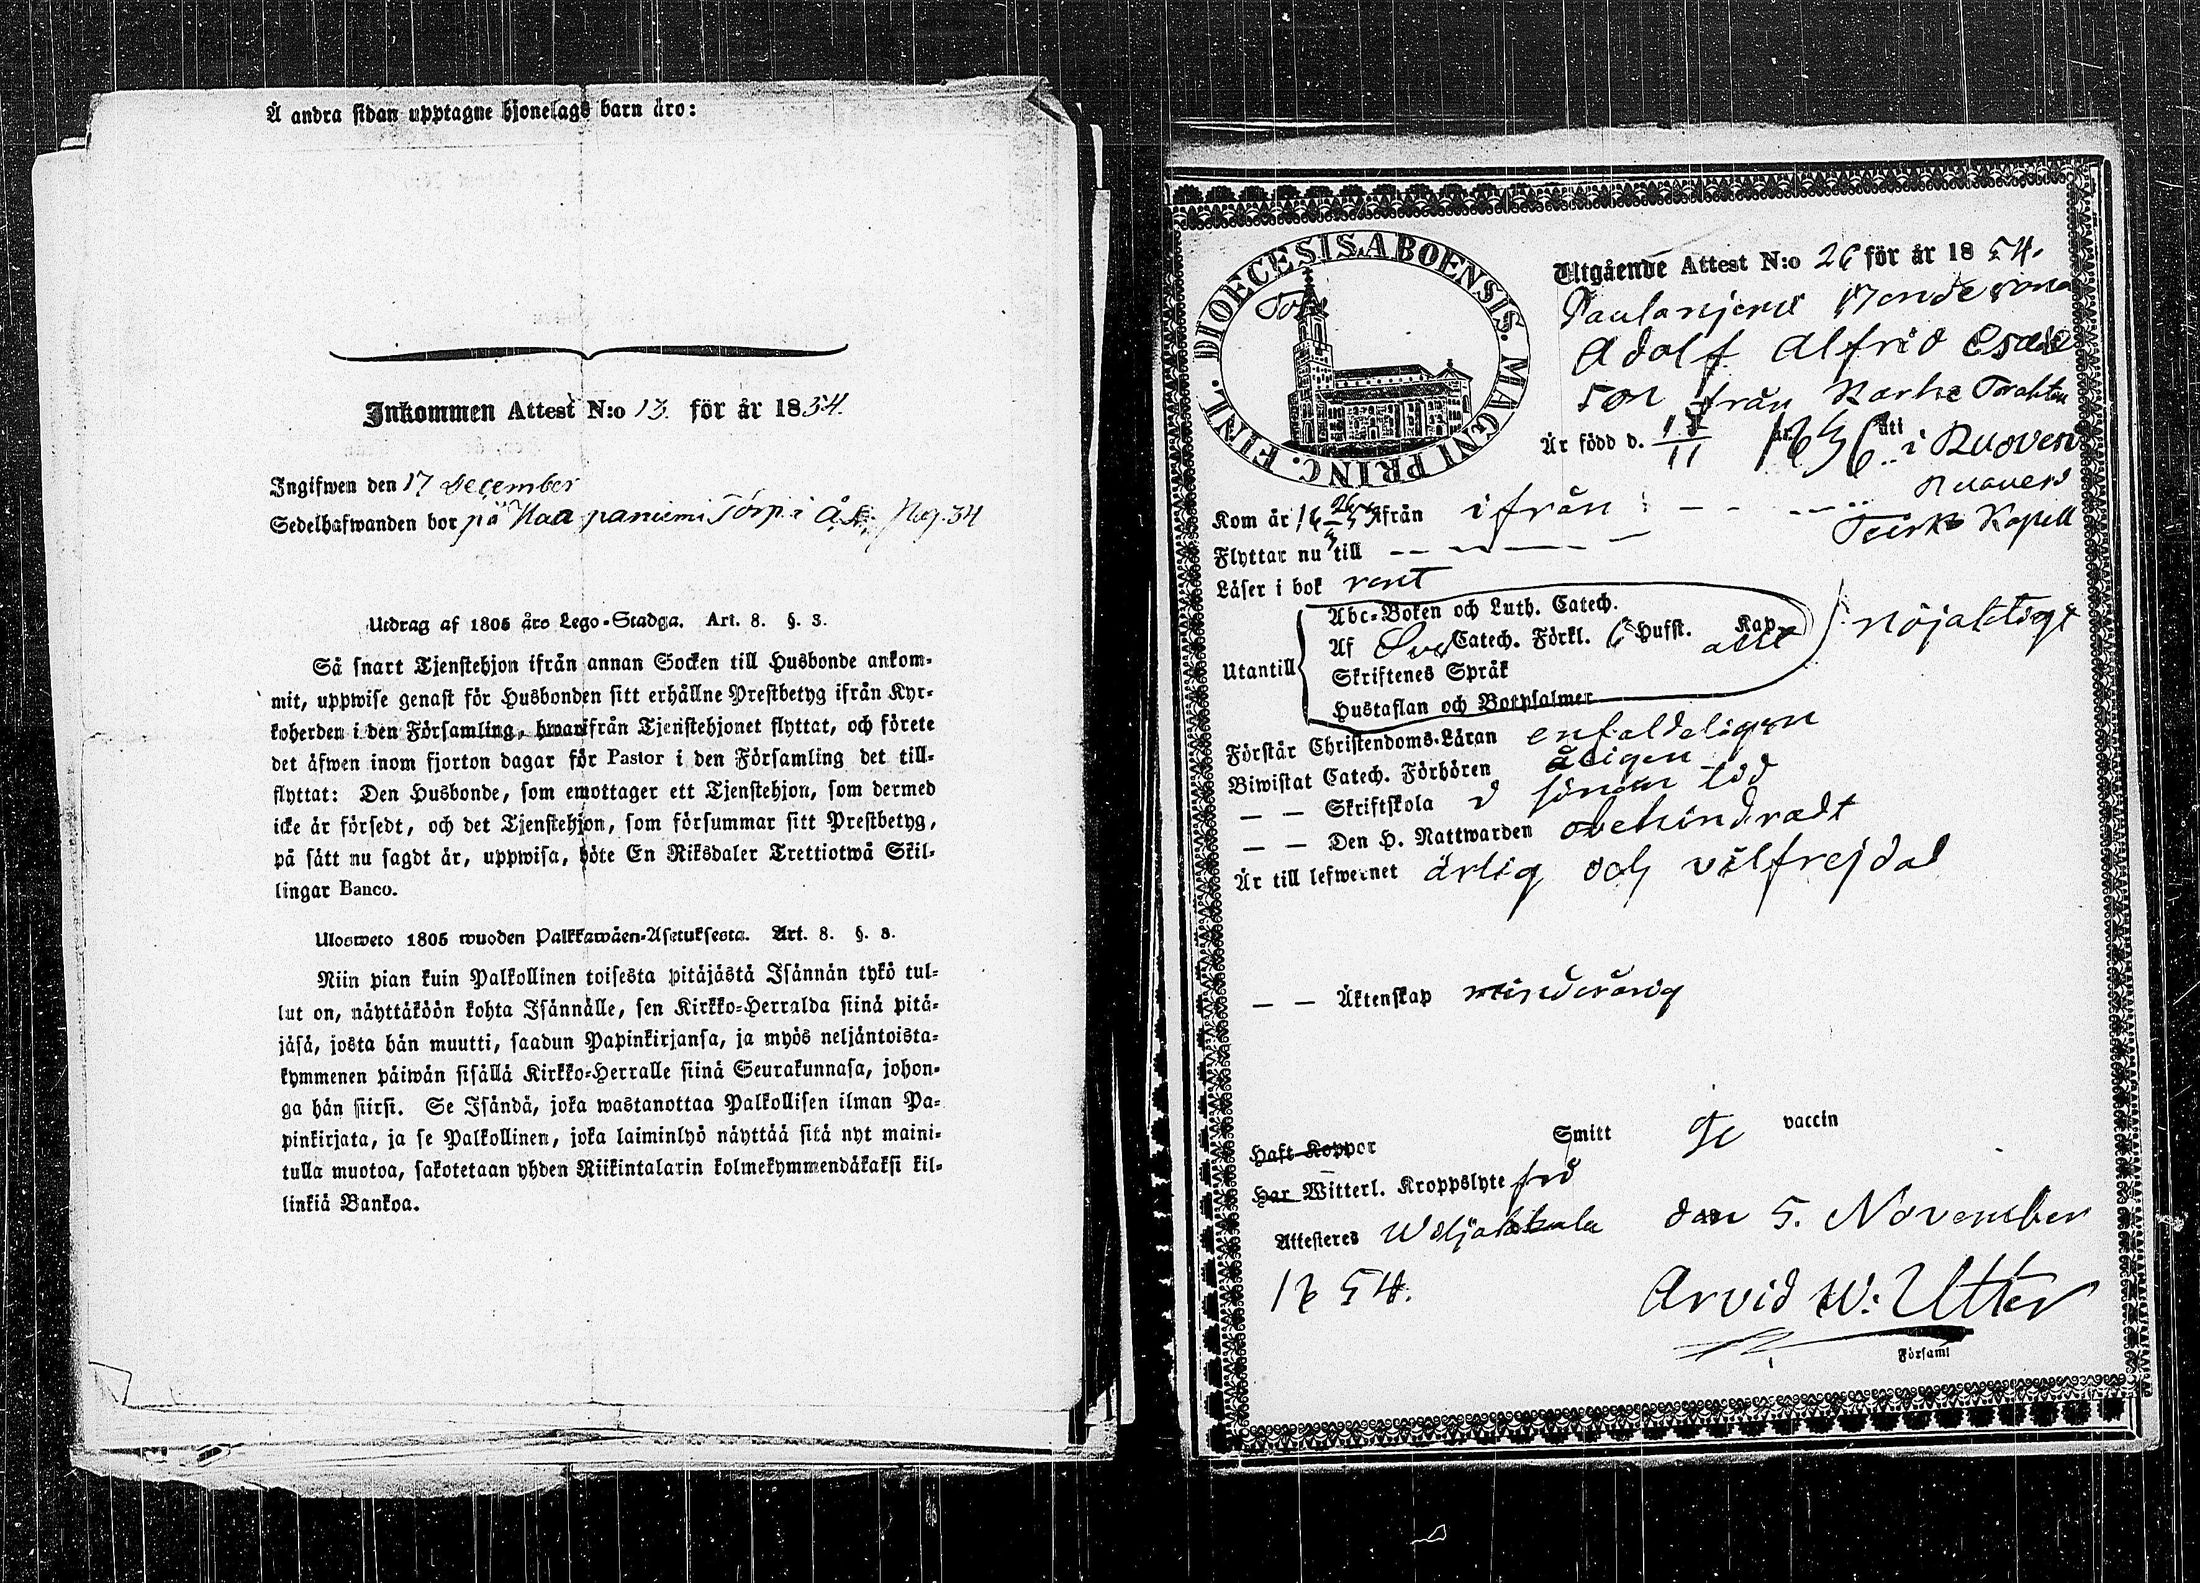 Å andra sidan upptagne hjonelags barn äro:
Inkommen Attest N:o 13. för år 1854.
Ingifwen den 17 December
Sedelhafwanden bor på Haapaniemi Torp i
Utdrag af 1805 års Lego-Stadga. Art. 8. §. 3.
Så snart Tjenstehjon ifrån annan Socken till Husbonde ankom-
mit, uppwise genast för Husbonden sitt erhållne Prestbetyg ifrån Kyr-
koherden i den Församling, hwarifrån Tjenstehjonet flyttat, och förete
det äfwen inom fjorton dagar för Pastor i den Församling det till-
flyttat: Den Husbonde, som emottager ett Tjenstehjon, som dermed
icke är försedt, och det Tjenstehjon, som försummar sitt Prestbetyg,
på sätt nu sagdt är, uppwisa, böte En Riksdaler Trettiotwå Skil-
lingar Banco.
Ulosweto 1805 wuoden Palkkawäen-Asetuksesta. Art. 8. §. 3.
Niin pian kuin Palkollinen toisesta pitäjästä Isännän tykö tul-
lut on, näyttäköön kohta Isännälle, sen Kirkko-Herralda siinä pitä-
jäsä, josta hän muutti, saadun Papinkirjansa, ja myös neljäntoista-
kymmenen päiwän sisällä Kirkko-Herralle siinä Seurakunnasa, johon-
ga hän siirsi. Se Isändä, joka wastanottaa Palkollisen ilman Pa-
pinkirjata, ja se Palkollinen, joka laiminlyö näyttää sitä nyt maini-
tulla muotoa, sakotetaan yhden Riikintalarin kolmekymmendäkaksi kil-
linkiä Bankoa.
DIOECESIS ABOENSIS. MAGNI PRINC. FINL.
Utgående Attest N:o 26 för år 1854.
Adolf Alfrid Esaias
son från
Är född d. 18/11 år 1836 uti i Ruoves
Ruovesi
Kom år ifrån ifrån
Kapell
Flyttar nu till
Läser i bok rent
Abc-Boken och Luth. Catech.
Af Catech. Förkl. 6 Hufst. Kap. allt nöjaktigt
Utantill
Skriftenes Språk
Hustaflan och Botpsalmer
Förstår Christendoms-Läran enfaldeligen
Biwistat Catech. Förhören årligen
— — Skriftskola
— — Den H. Nattwarden obehindradt
Är till lefwernet ärlig och välfrejdad
— — Äktenskap minderårig
Haft Koppor Smitt vaccin
Har Witterl. Kroppslyte
Attesteres Wiljakkala den 5. November
1854.
Arvid W. Utter
Församl